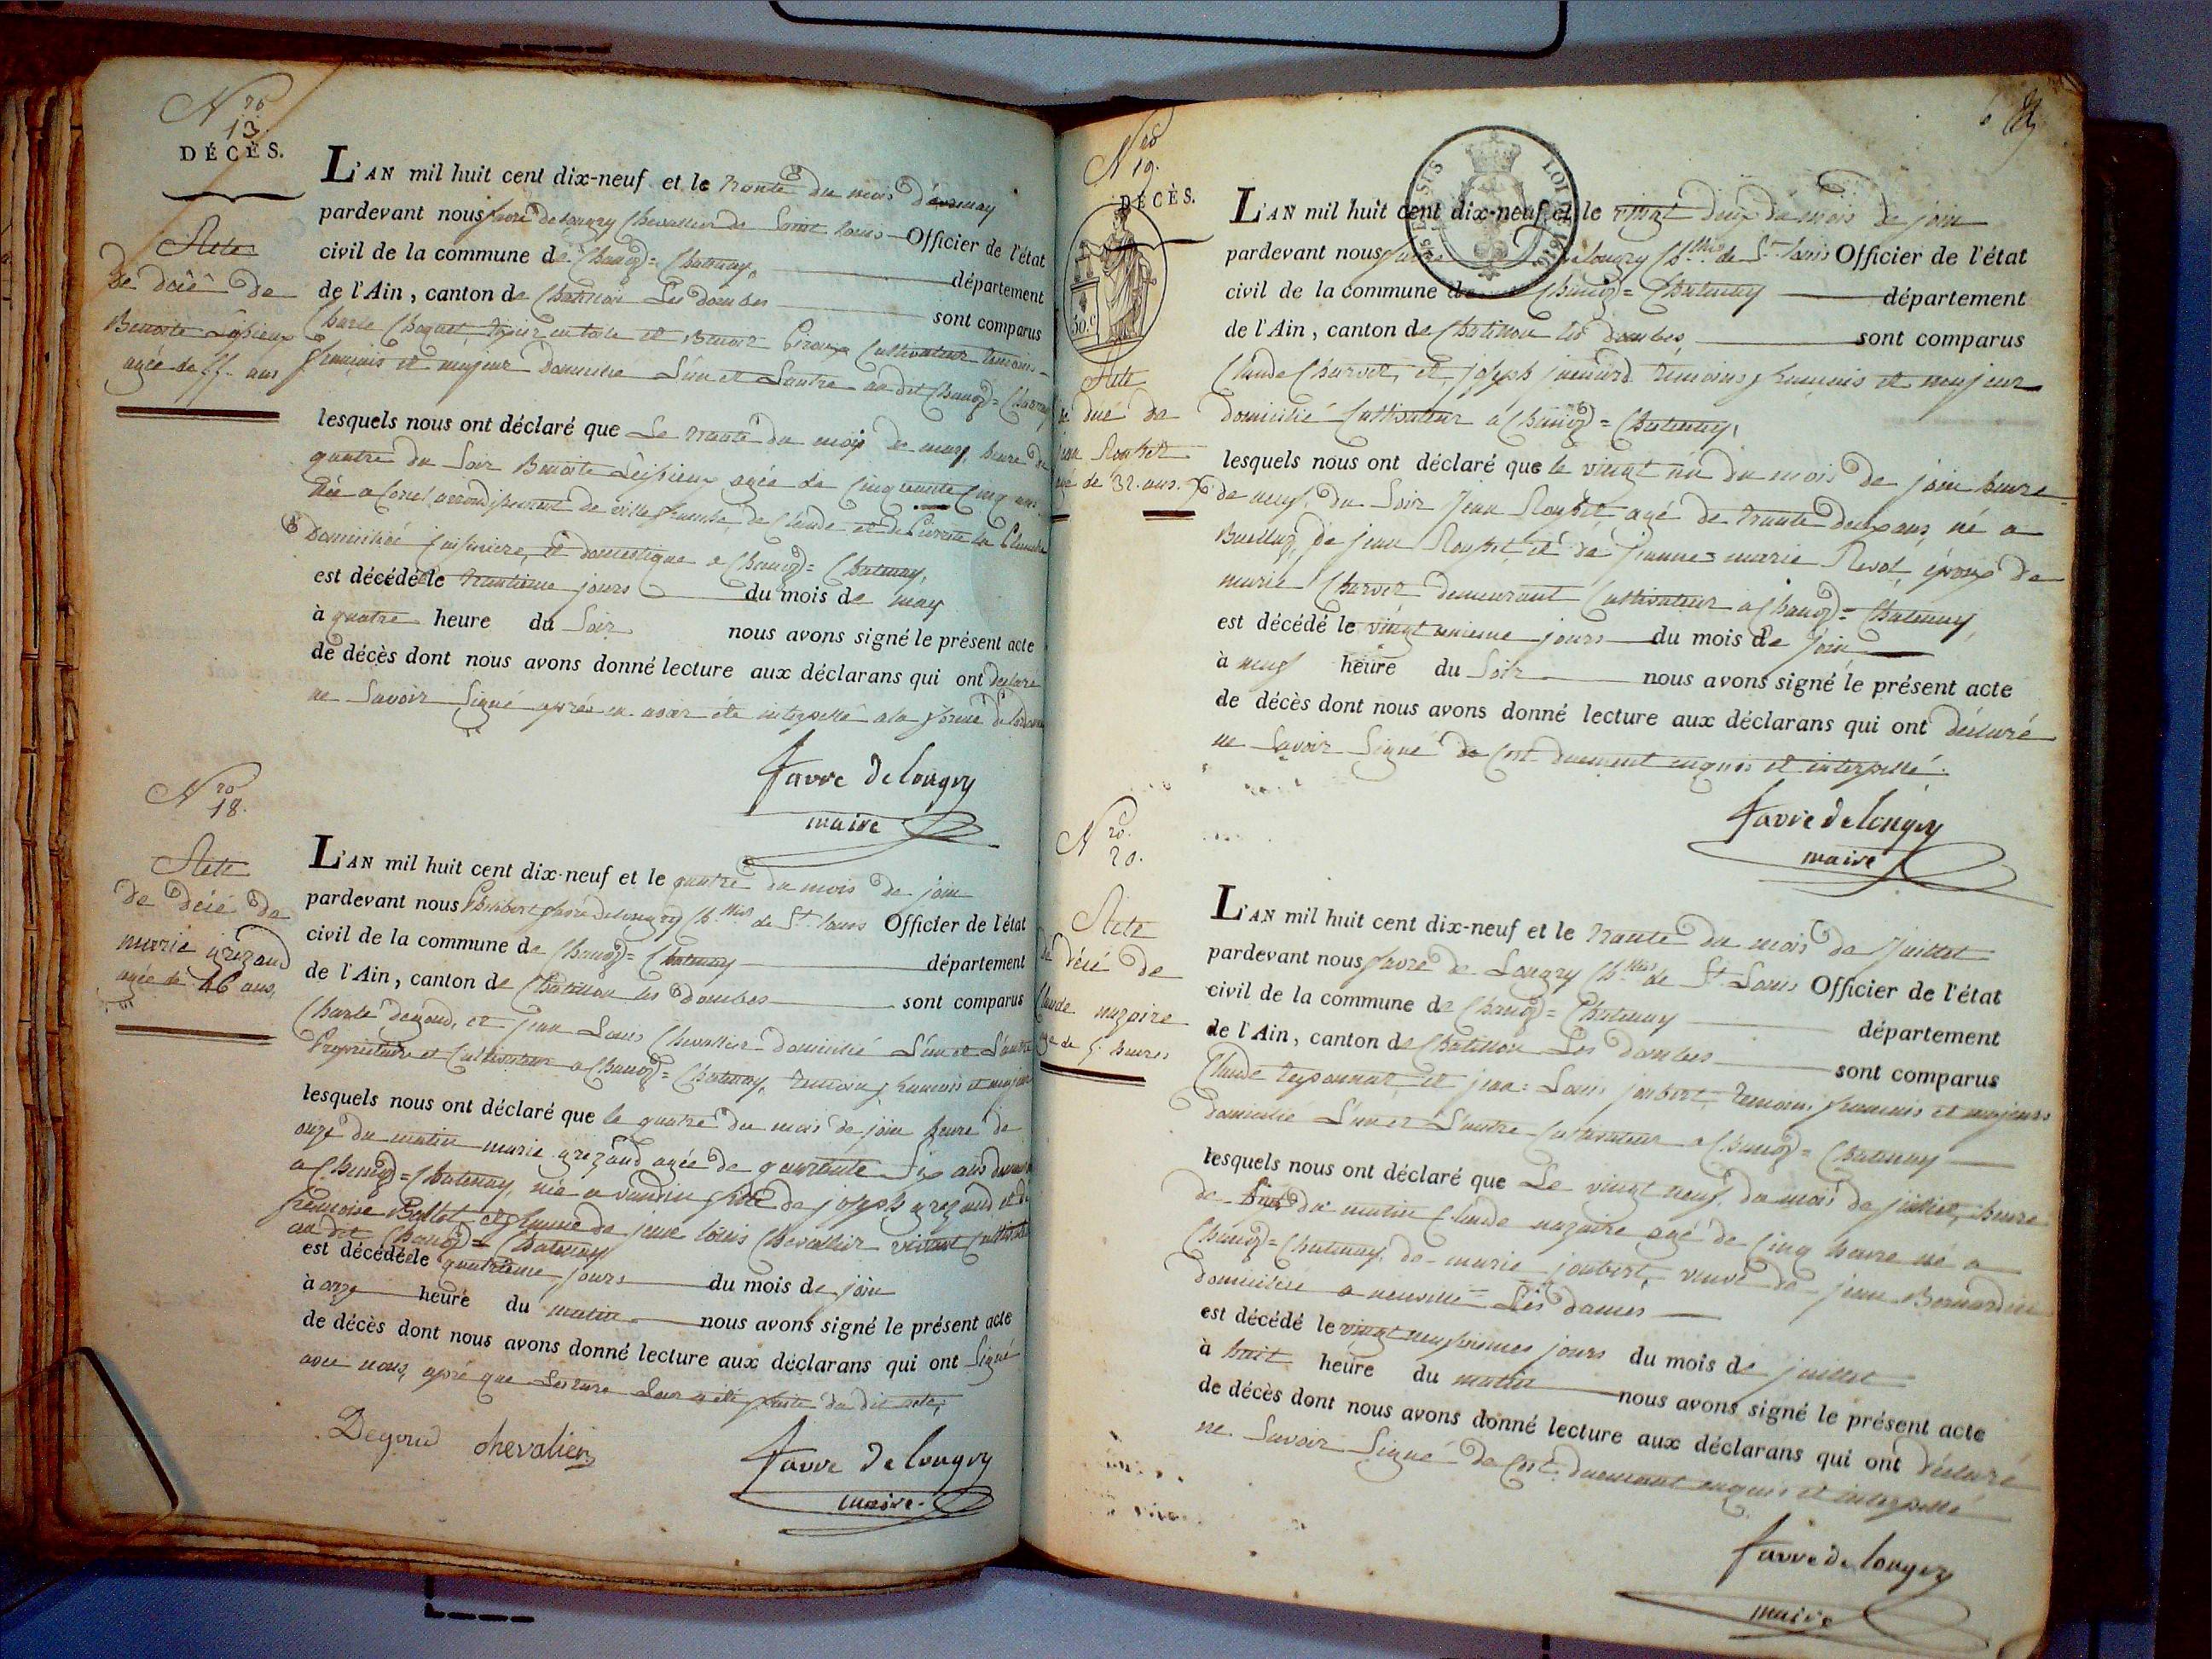 N ro
13
DÉCÈS.
Acte
de décé de
Benoite
agée de 55 ans
L'AN mil huit cent dix-neuf et le trante du mois
pardevant nous favre de longry Chevallier de Saint Louis Officier de l'état
civil de la commune de Chanoz = Chatenay, département
de l'Ain, canton de Chatillon Les dombes sont comparus
Charle et Benoit Cultivateur temoins
francais et majeur Domicilié L'un et Lautre au dit Chanoz = Chatenay
lesquels nous ont déclaré que Le trante du mois de may heure de
quatre du Soir Benoite agée de Cinquante Cinq ans
née a arrondissement de villefranche, de Claude et de Pierrette
Domiciliée Cuisiniere, et domestique a Chanoz = Chatenay,
est décédée le trantieme jours du mois de may
à quatre heure du Soir nous avons signé le présent acte
de décès dont nous avons donné lecture aux déclarans qui ont déclaré
ne Savoir Signé aprés en avoir été interpellé a la forme
favre de longry
maire
N ro
18.
Acte
de décé de
marie grezaud
agée de 46 ans,
L'AN mil huit cent dix-neuf et le quatre du mois de join
pardevant nous Philibert favre de longry Ch.llier de St. Louis Officier de l'état
civil de la commune de Chanoz = Chatenay département
de l'Ain, canton de Chatillon les dombes sont comparus
Charle degoud, et jean Louis Chevallier domicilié L'un et L'autre
Proprietaire et Cultivateur a Chanoz = Chatenay, temoins francais et majeur
lesquels nous ont déclaré que le quatre du mois de join heure de
onze du matin marie grezaud agée de quarante Six ans
a Chanoz = Chatenay, née a vandin fille de joseph grezaud et de
francoise Bollet et femme de jean Louis Chevallier vivant
au dit Chanoz = Chatenay
est décédée le quatrieme jours du mois de join
à onze heure du matin nous avons signé le présent acte
de décès dont nous avons donné lecture aux déclarans qui ont Signé
avec nous, apré que Lecture Leur a été faite du dit acte,
Degoud chevalier
favre de longry
maire
N ro
19.
DÉCÈS.
50.c
Acte
de décé de
jean
agé de 32. ans.
L'AN mil huit cent dix-neuf et le vingt deux du mois de join
pardevant nous favre de longry Ch.llier de St. Louis Officier de l'état
civil de la commune de Chanoz = Chatenay département
de l'Ain, canton de Chatillon les dombes sont comparus
Claude Charvet, et joseph temoins francais et majeur
domicilié Cultivateur a Chanoz = Chatenay,
lesquels nous ont déclaré que le vingt un du mois de join heure
de neuf, du Soir Jean agé de trante deux ans, né a
de jean et de jeanne = marie époux de
marie Charvet demeurant Cultivateur a Chanoz = Chatenay,
est décédé le vingt unieme jours du mois de join
à neuf heure du Soir nous avons signé le présent acte
de décès dont nous avons donné lecture aux déclarans qui ont déclaré
ne Savoir Signé de Cest duement enquis et interpellé.
favre de longry
maire
N ro
20.
Acte
de décé de
Claude nazaire
agé de 5. heures
L'AN mil huit cent dix-neuf et le trante du mois de Juillet
pardevant nous favre de Longry Ch.llier de St. Louis Officier de l'état
civil de la commune de Chanoz = Chatenay département
de l'Ain, canton de Chatillon Les dombes sont comparus
Claude et jean = Louis joubert temoins francais et majeurs
domicilié L'un et L'autre Cultivateur a Chanoz = Chatenay
lesquels nous ont déclaré que Le vingt neuf du mois de juillet, heure
de huit du matin Claude nazaire agé de Cinq heure né a
Chanoz = Chatenay, de marie joubert, veuve de jean Bernardin
domiciliée a neuville = Les dames
est décédé le vingt neuvieme jours du mois de juillet
à huit heure du matin nous avons signé le présent acte
de décès dont nous avons donné lecture aux déclarans qui ont déclaré
ne Savoir Signé de Cest duement enquis et interpellé
favre de longry
maire